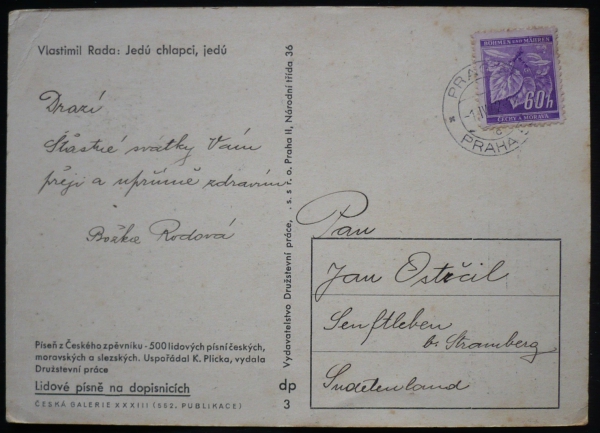 Vlastimil Rada: Jedú chlapci, jedú
Drazí
Šťastné svátky Vám
přeji a upřímně zdravím
Božka Rodová
Píseň z Českého zpěvníku - 500 lidových písní českých,
moravských a slezských. Uspořádal K. Plicka, vydala
Družstevní práce
Lidové písně na dopisnicích
ČESKÁ GALERIE XXXIII (552. PUBLIKACE)
Vydavatelství Družstevní práce, s. s r. o. Praha II, Národní třída 36
dp
3
BÖHMEN UND MÄHREN
60h
ČECHY A MORAVA
PRAHA
Pan
Jan Ostrčil
Senftleben
b/ Stramberg
Sudetenland